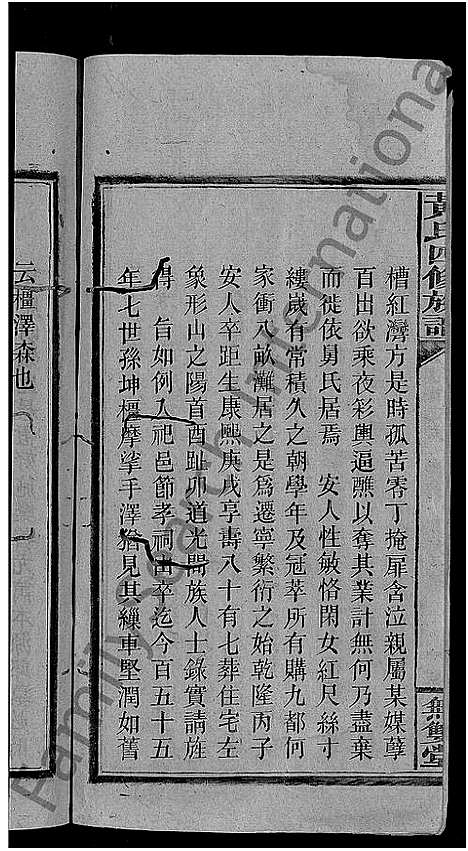 黃氏四修族譜
無雙堂
槽紅灣方是時孤苦零丁掩扉含泣親屬某媒孽
百出欲乘夜彩輿逼醮以奪其業計無何乃盡棄
而徙依舅氏居焉　安人性敏恪閑女紅尺絲寸
縷歲有常積久之朝學年及冠萃所有購九都何
家衝八畝灘居之是為遷寧繁衍之始乾隆丙子
安人卒距生康熙庚戌享壽八十有七葬住宅左
象形山之陽首酉趾卯道光間族人士錄實請旌
得　旨如例入祀邑節孝祠由卒迄今百五十五
年七世孫坤橿摩挲手澤猶見其繅車堅潤如舊
云橿澤森也
Family Search International